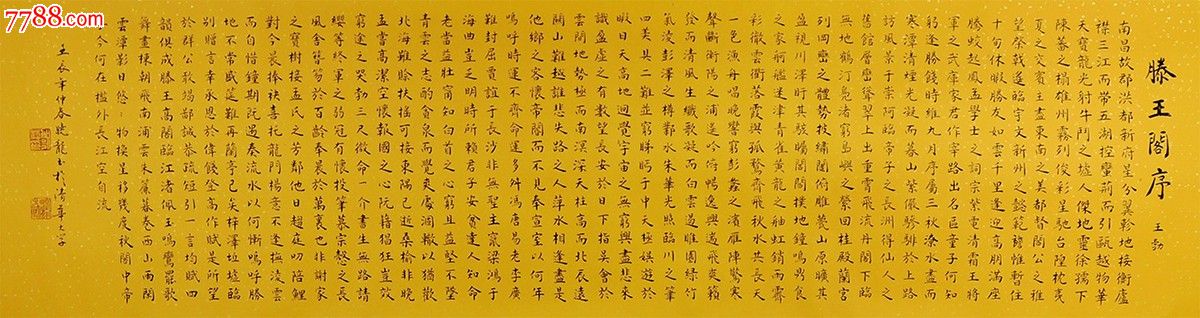 7788.com
滕王閣序 王勃
南昌故郡洪都新府星分翼軫地接衡廬
襟三江而帶五湖控蠻荊而引甌越物華
天寶龍光射牛鬥之墟人傑地靈徐孺下
陳蕃之榻雄州霧列俊彩星馳台隍枕夷
夏之交賓主盡東南之美都督閻公之雅
望棨戟遙臨宇文新州之懿範襜帷暫住
十旬休暇勝友如雲千里逢迎高朋滿座
騰蛟起鳳孟學士之詞宗紫電清霜王將
軍之武庫家君作宰路出名區童子何知
躬逢勝餞時維九月序屬三秋潦水盡而
寒潭清煙光凝而暮山紫儼驂騑於上路
訪風景于崇阿臨帝子之長洲得仙人之
舊館層巒聳翠上出重霄飛流丹閣下臨
無地鶴汀鳧渚窮島嶼之縈回桂殿蘭宮
列岡巒之體勢披繡闥俯雕甍山原曠其
盈視川澤盱其駭矚閭閻撲地鐘鳴鼎食
之家舸艦迷津青雀黃龍之軸虹銷雨霽
彩徹雲衢落霞與孤鶩齊飛秋水共長天
一色漁舟唱晚響窮彭蠡之濱雁陣驚寒
聲斷衡陽之浦遙吟俯暢逸興遄飛爽籟
發而清風生纖歌凝而白雲遏睢園綠竹
氣淩彭澤之樽鄴水朱華光照臨川之筆
四美具二難並窮睇眄于中天極娛遊於
暇日天高地迥覺宇宙之無窮興盡悲來
識盈虛之有數望長安於日下指吳會於
雲間地勢極而南溟深天柱高而北辰遠
關山難越誰悲失路之人萍水相逢盡是
他鄉之客懷帝閽而不見奉宣室以何年
嗚呼時運不齊命途多舛馮唐易老李廣
難封屈賈誼于長沙非無聖主竄梁鴻于
海曲豈乏明時所賴君子安貧達人知命
老當益壯寧知白首之心窮且益堅不墜
青雲之志酌貪泉而覺爽處涸轍以猶歡
北海雖賒扶搖可接東隅已逝桑榆非晚
孟嘗高潔空懷報國之心阮籍猖狂豈效
窮途之哭勃三尺微命一介書生無路請
纓等終軍之弱冠有懷投筆慕宗愨之長
風舍簪笏於百齡奉晨昏於萬裏非謝家
之寶樹接孟氏之芳鄰他日趨庭叨陪鯉
對今晨捧袂喜托龍門楊意不逢撫淩雲
而自惜鐘期既遇奏流水以何慚嗚呼勝
地不常盛筵難再蘭亭已矣梓澤丘墟臨
別贈言幸承恩於偉餞登高作賦是所望
於群公敢竭鄙誠恭疏短引一言均賦四
韻俱成滕王高閣臨江渚佩玉鳴鸞罷歌
舞畫棟朝飛南浦雲朱簾暮卷西山雨閑
雲潭影日悠悠物換星移幾度秋閣中帝
子今何在檻外長江空自流
壬辰年仲春曉龍書於清華大學